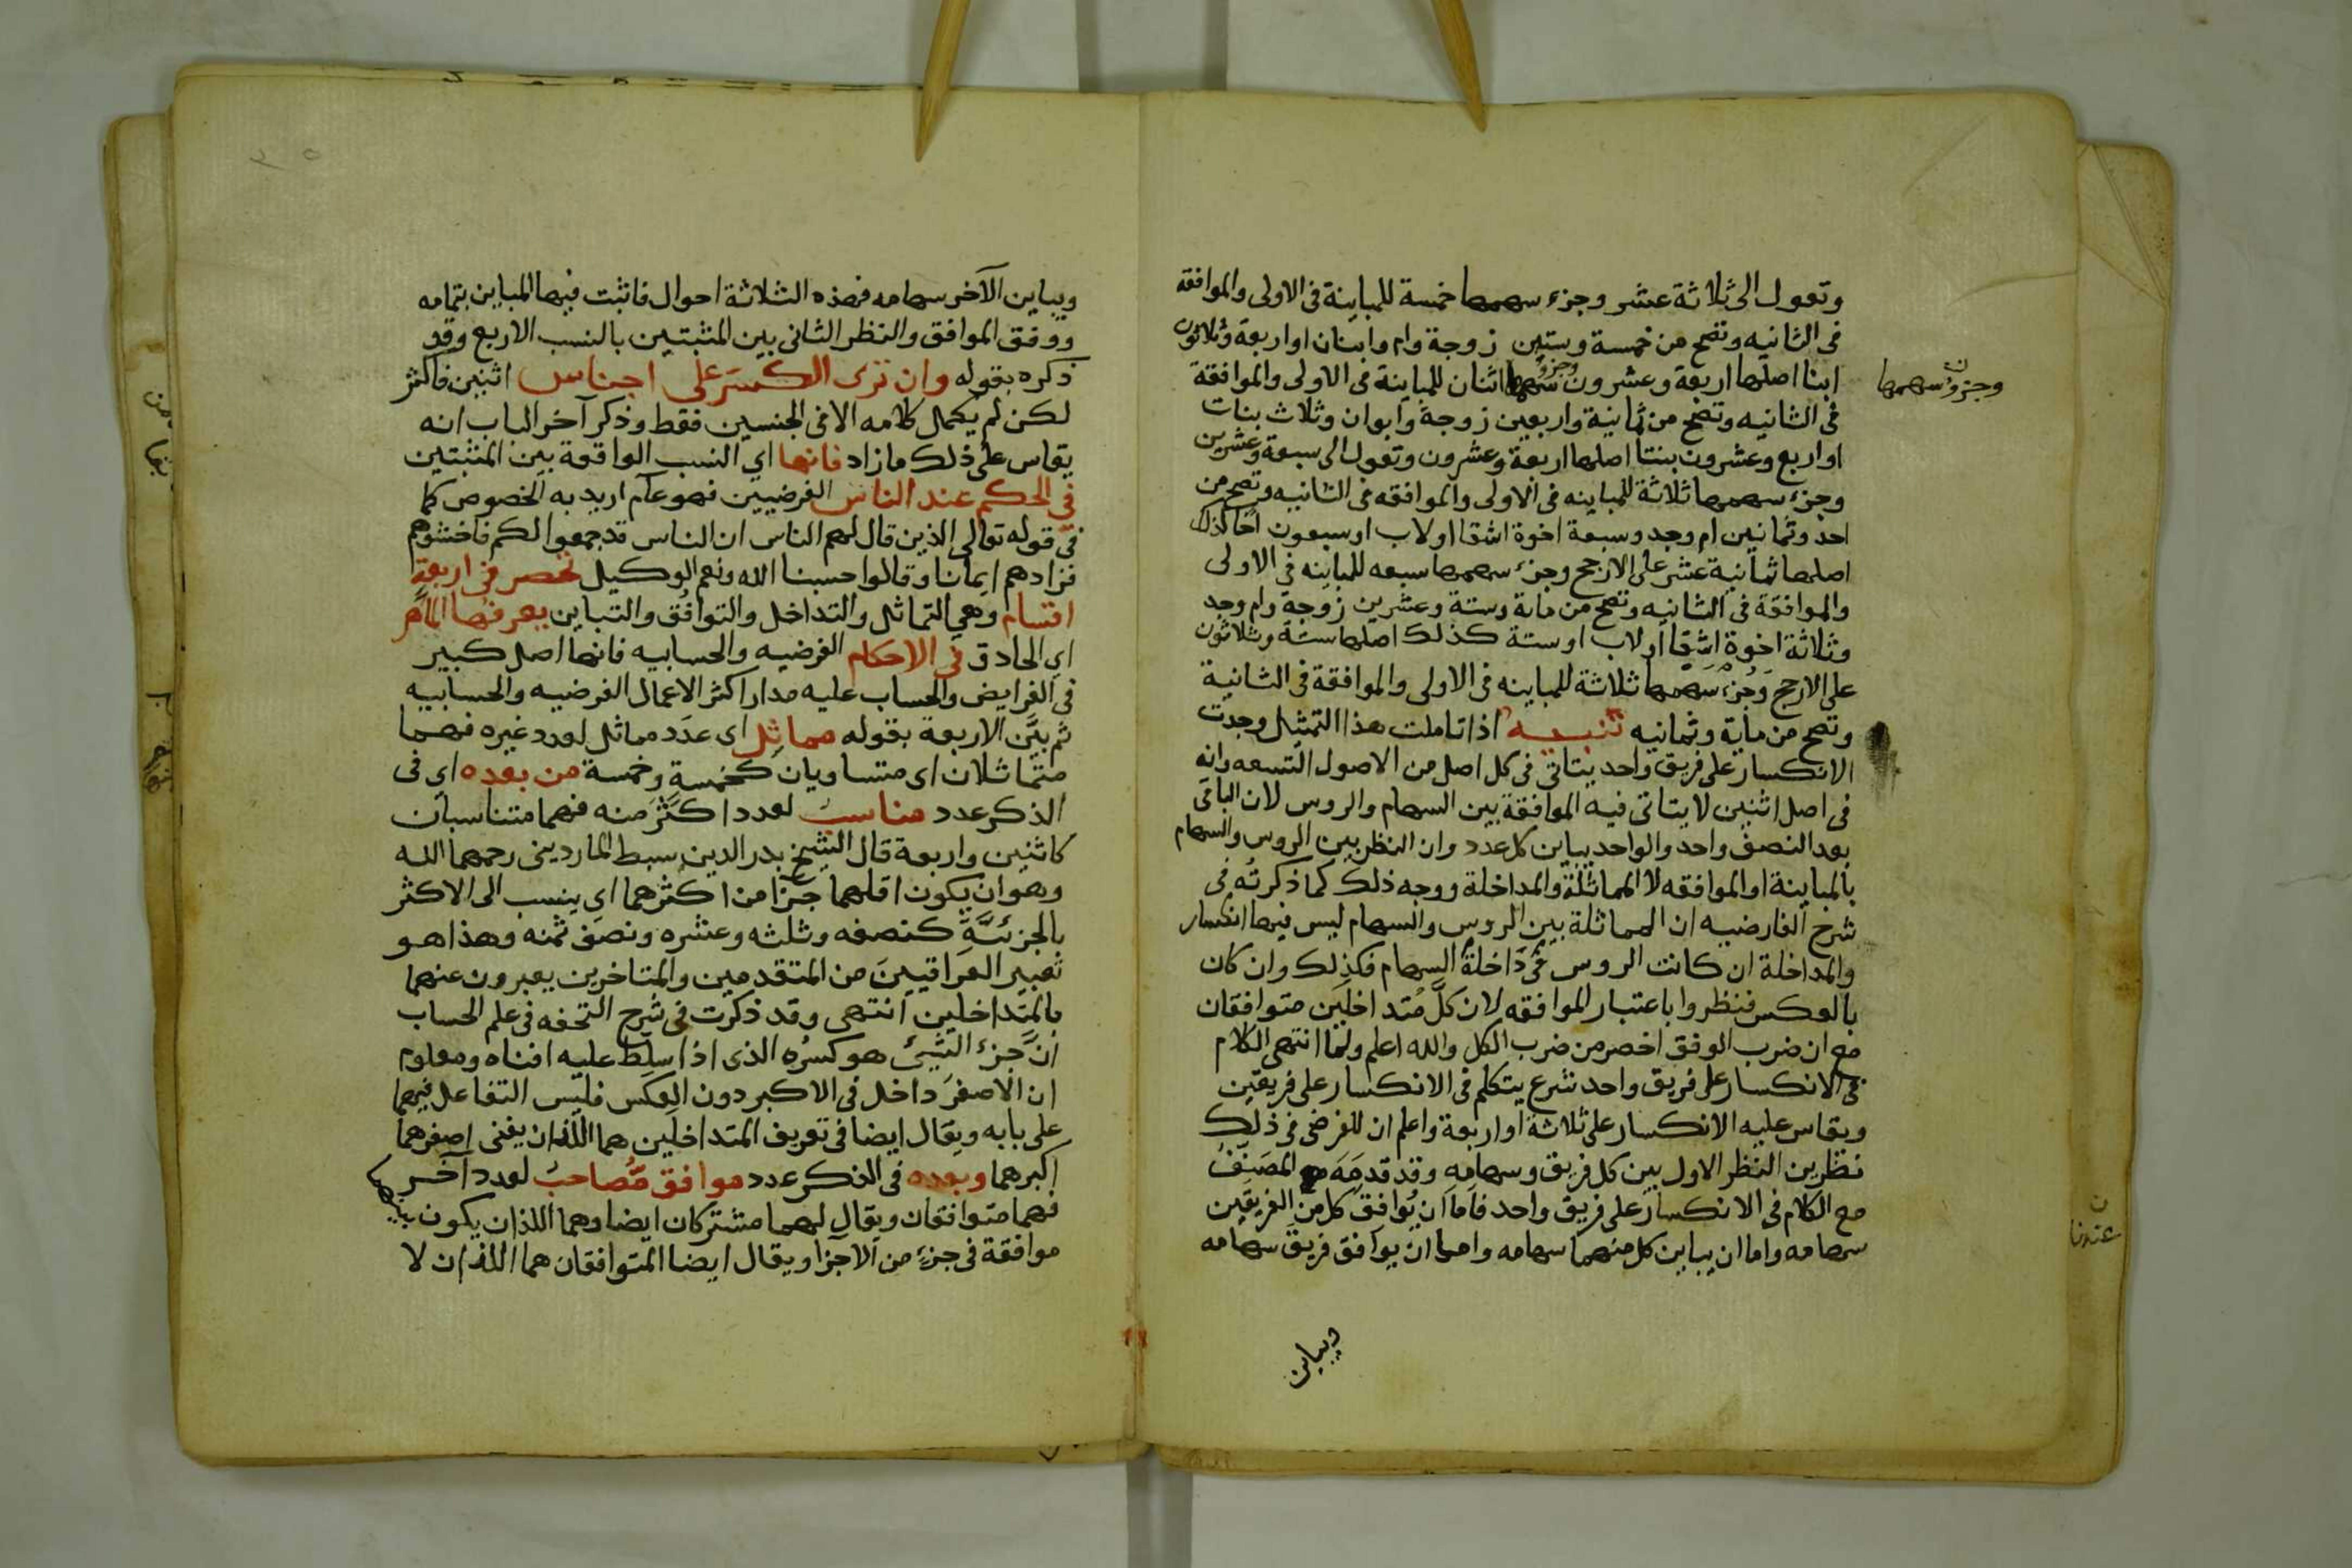 وتعول الى ثلاثة عشر وجزء سهمها خمسة للمباينة فى الاولى والموافقة
فى الثانيه وتصح من خمسة وستين زوجة وام وابنان او اربعة وثلاثون
ابنا اصلها اربعة وعشرون وجزؤ سهمها اثنان للمباينة فى الاولى والموافقة
وجزؤ سهمها
فى الثانيه وتصح من ثمانية واربعين زوجة وابوان وثلاث بنات
او اربع وعشرون بنتا اصلها اربعة وعشرون وتعول الى سبعة وعشرين
وجزء سهمها ثلاثة للمباينه فى الاولى والموافقه فى الثانيه وتصح من
احد وثمانين ام وجد وسبعة اخوة اشقا او لاب او سبعون اخا كذلك
اصلها ثمانية عشر على الارجح وجزء سهمها سبعه للمباينه فى الاولى
والموافقة فى الثانيه وتصح من ماية وستة وعشرين زوجة وام وجد
وثلاثة اخوة اشقا او لاب او ستة كذلك اصلها ستة وثلاثون
على الارجح وجزء سهمها ثلاثة للمباينه فى الاولى والموافقة فى الثانية
وتصح من ماية وثمانيه تنبيه اذا تاملت هذا التمثيل وجدت
الانكسار على فريق واحد يتاتى فى كل اصل من الاصول التسعه وانه
فى اصل اثنين لا يتاتى فيه الموافقة بين السهام والروس لان الباقى
بعد النصف واحد والواحد يباين كل عدد وان النظر بين الروس والسهام
بالمباينة او الموافقه لا المماثلة والمداخلة ووجه ذلك كما ذكرته فى
شرح الفارضيه ان المماثلة بين الروس والسهام ليس فيها انكسار
والمداخلة ان كانت الروس داخلة فى السهام فكذلك وان كان
بالعكس فنظروا باعتبار الموافقه لان كل متداخلين متوافقان
مع ان ضرب الوفق اخصر من ضرب الكل والله اعلم ولما انتهى الكلام
فى الانكسار على فريق واحد شرع يتكلم فى الانكسار على فريقين
ويقاس عليه الانكسار على ثلاثة او اربعة واعلم ان للفرضى فى ذلك
نظرين النظر الاول بين كل فريق وسهامه وقد قدمه المصنف
مع الكلام فى الانكسار على فريق واحد فاما ان يوافق كل من الفريقين
سهامه واما ان يباين كل منهما سهامه واما ان يوافق فريق سهامه
ويباين
ويباين الآخر سهامه فهذه الثلاثة احوال فاثبت فيها المباين بتمامه
ووفق الموافق والنظر الثانى بين المثبتين بالنسب الاربع وقد
ذكره بقوله وان ترى الكسر على اجناس اثنين فاكثر
لكن لم يكمل كلامه الا فى الجنسين فقط وذكر آخر الباب انه
يقاس على ذلك ما زاد فانها اي النسب الواقعة بين المثبتين
في الحكم عند الناس الفرضيين فهو عام اريد به الخصوص كما
فى قوله تعالى الذين قال لهم الناس ان الناس قد جمعوا لكم فاخشوهم
فزادهم ايمانا وقالوا حسبنا الله ونعم الوكيل تحصر في اربعة
اقسام وهى التماثل والتداخل والتوافق والتباين يعرفها الماهر
اي الحاذق فى الاحكام الفرضيه والحسابيه فانها اصل كبير
فى الفرايض والحساب عليه مدار اكثر الاعمال الفرضيه والحسابيه
ثم بين الاربعة بقوله مماثل اى عدد مماثل لعدد غيره فهما
متماثلان اى متساويان كخمسة وخمسة من بعده اي فى
الذكر عدد مناسب لعدد اكثر منه فهما متناسبان
كاثنين واربعة قال الشيخ بدر الدين سبط الماردينى رحمهما الله
وهو ان يكون اقلهما جزا من اكثرهما اي ينسب الى الاكثر
بالجزئية كنصفه وثلثه وعشره ونصف ثمنه وهذا هو
تعبير العراقيين من المتقدمين والمتاخرين يعبرون عنهما
بالمتداخلين انتهى وقد ذكرت فى شرح التحفه فى علم الحساب
ان جزء الشيئ هو كسره الذى اذا سلط عليه افناه ومعلوم
ان الاصغر داخل فى الاكبر دون العكس فليس التفاعل فيهما
على بابه ويقال ايضا فى تعريف المتداخلين هما اللذان يفنى اصغرهما
اكبرهما وبعده فى الذكر عدد موافق مصاحب لعدد آخر
فهما متوافقان ويقال لهما مشتركان ايضا وهما اللذان يكون بينهما
موافقة فى جزء من الاجزا ويقال ايضا المتوافقان هما اللذان لا